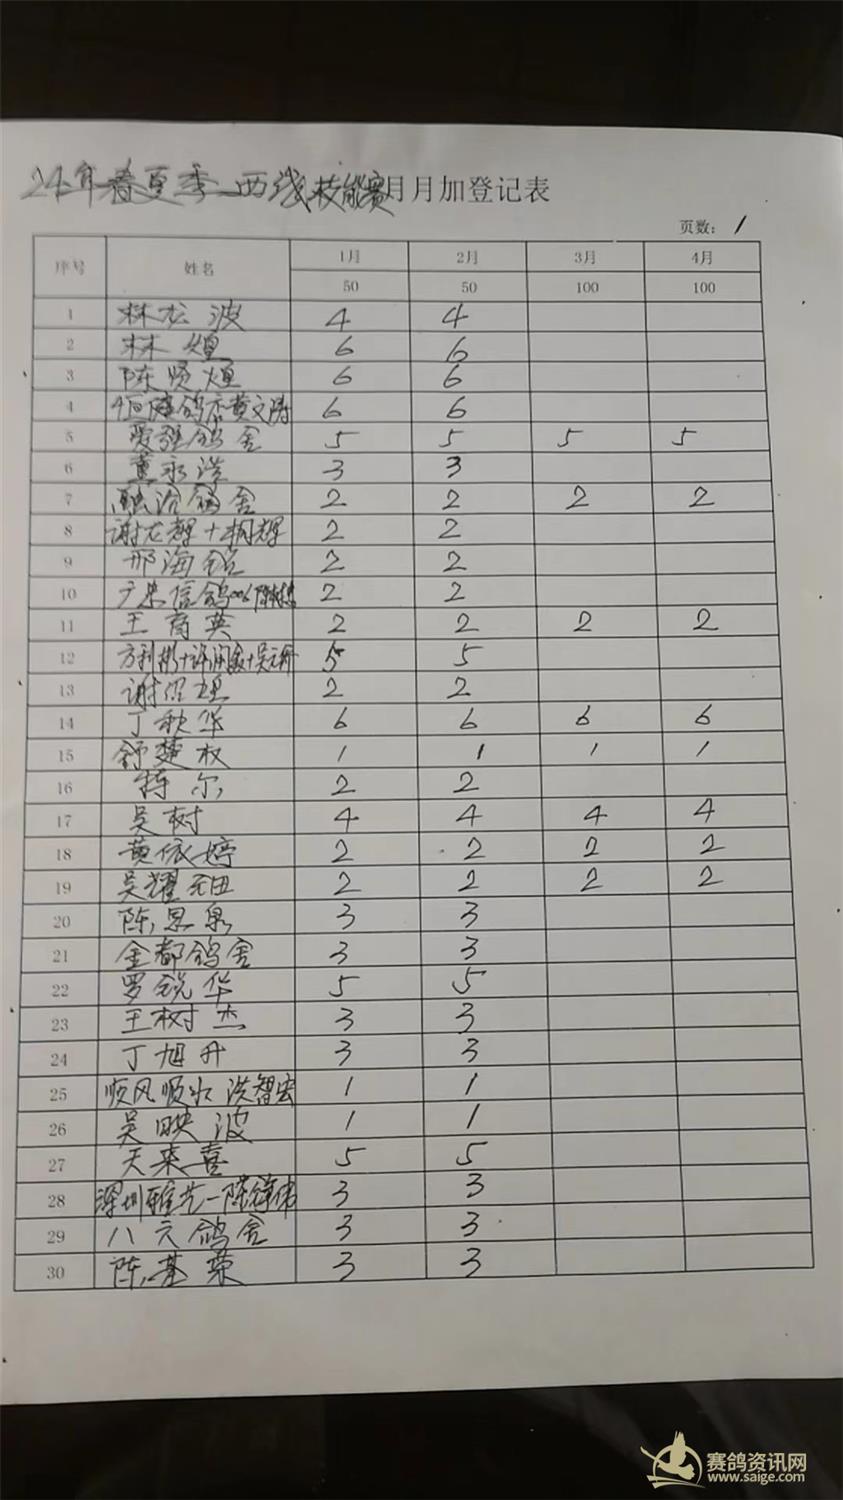 24年春夏季西线技能赛月月加登记表
页数: 1
序号 姓名 1月 2月 3月 4月
50 50 100 100
1 林松波 4 4
2 林煌 6 6
3 陈贤煌 6 6
4 鸽 黄文涛 6 6
5 爱强鸽舍 5 5 5 5
6 董永浩 3 3
7 融洽鸽舍 2 2 2 2
8 谢龙辉+桐辉 2 2
9 邢海锐 2 2
10 信鸽006陈 2 2
11 王育英 2 2 2 2
12 方利彬+许闰金+吴 5 5
13 谢 2 2
14 丁秋华 6 6 6 6
15 舒楚权 1 1 1 1
16 特尔 2 2
17 吴树 4 4 4 4
18 黄依婷 2 2 2 2
19 吴耀 2 2 2 2
20 陈思泉 3 3
21 金都鸽舍 3 3
22 罗锐华 5 5
23 王树杰 3 3
24 丁旭升 3 3
25 顺风顺水 洪智宏 1 1
26 吴映波 1 1
27 天来喜 5 5
28 深圳 一陈 3 3
29 八六鸽舍 3 3
30 陈基荣 3 3
赛鸽资讯网
www.saige.com